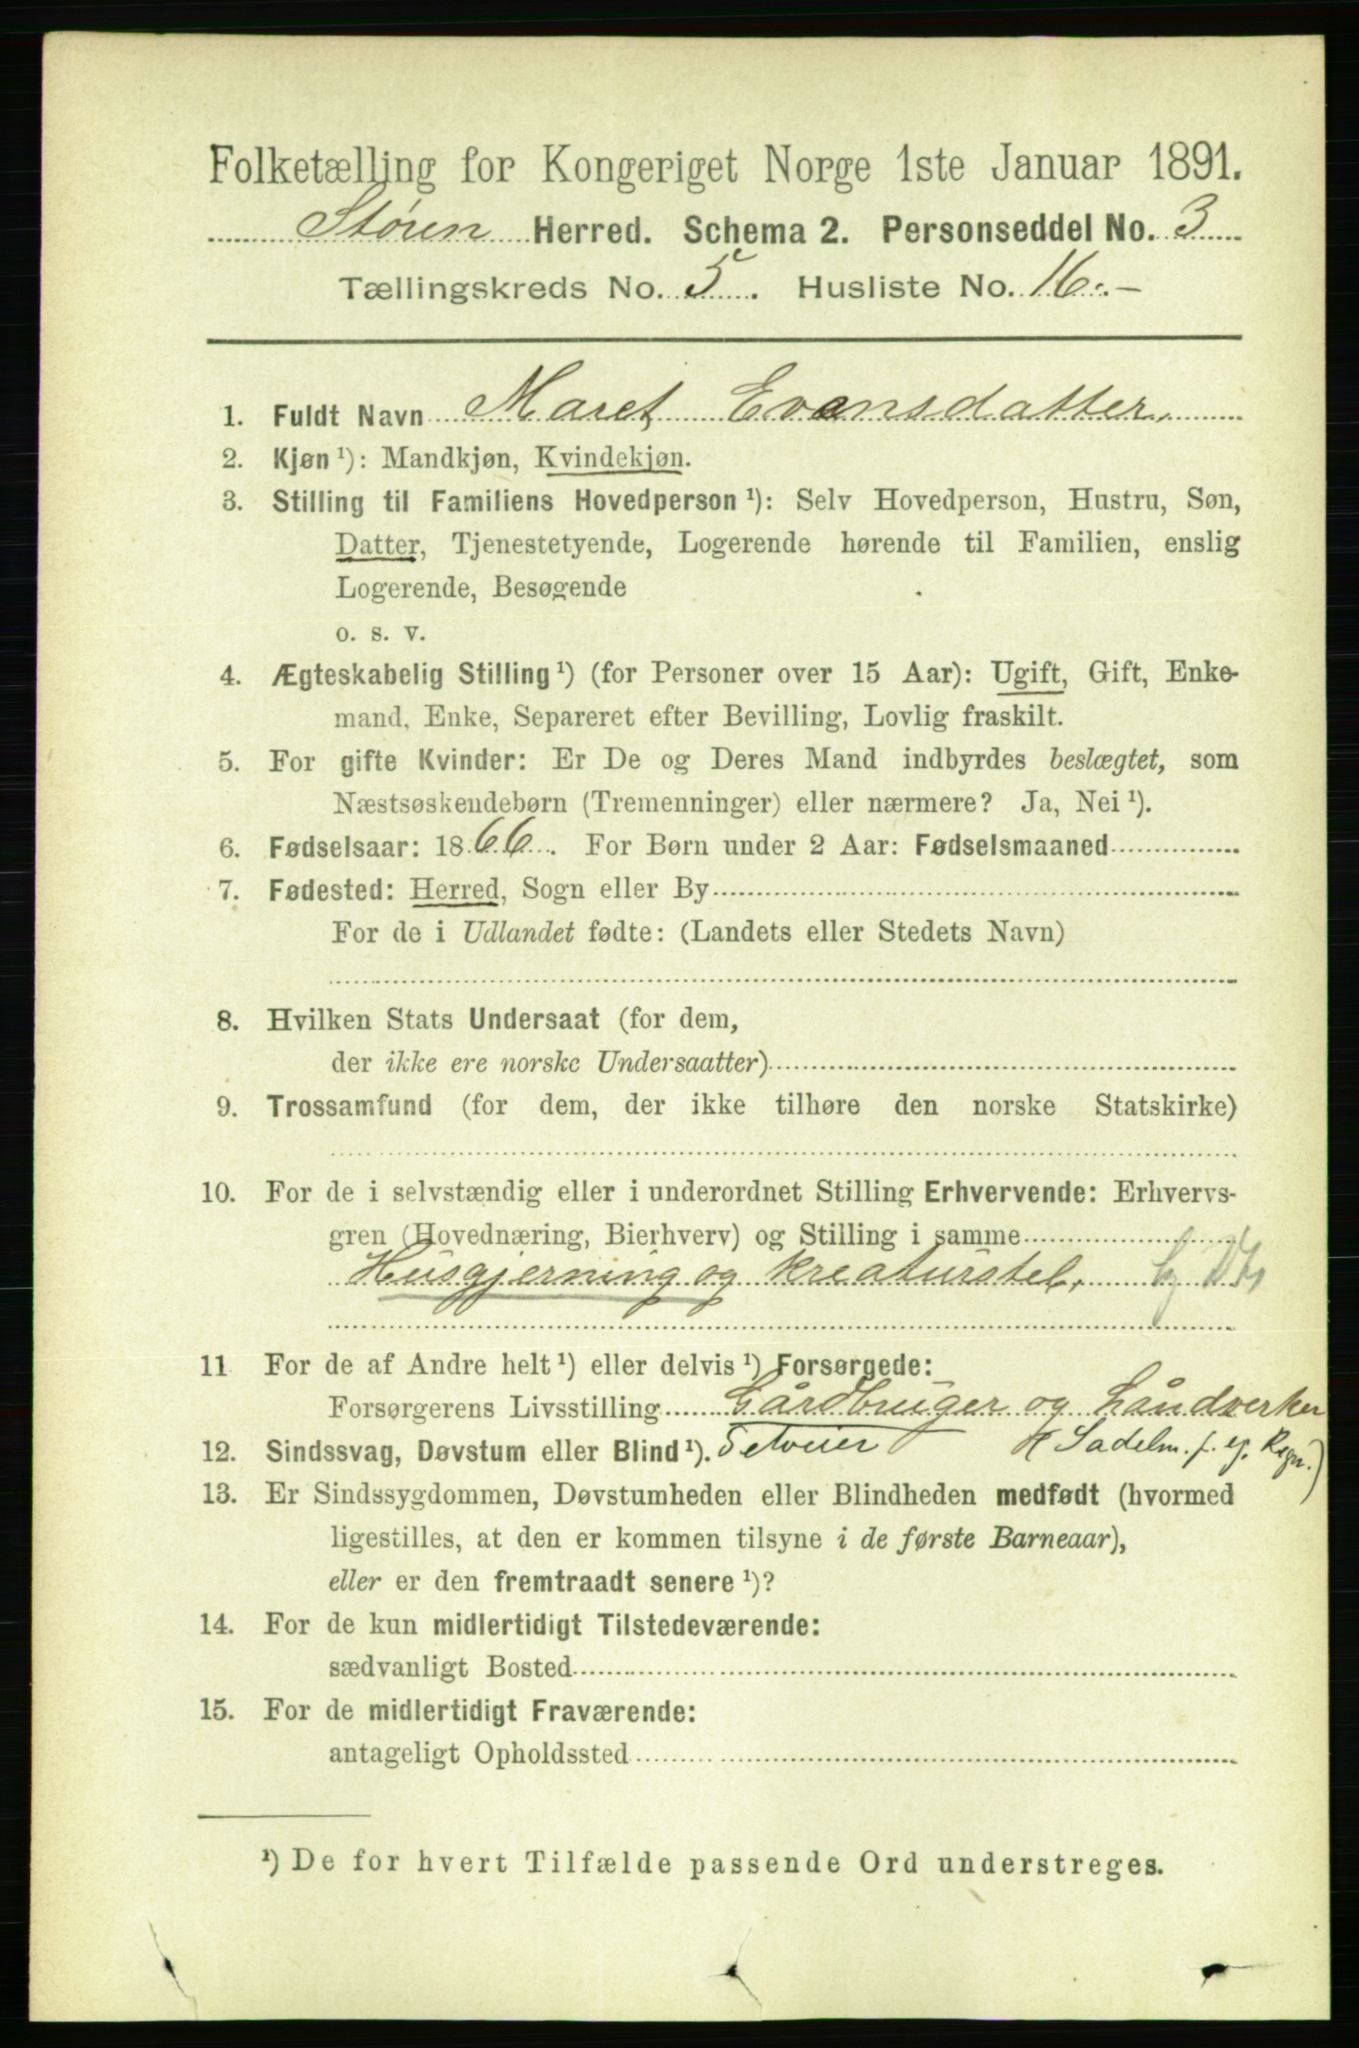 Folketælling for Kongeriget Norge 1ste Januar 1891.
Støren Herred. Schema 2. Personseddel No. 3
Tællingskreds No. 5. Husliste No. 16.-
1. Fuldt Navn Maret Evensdatter,
2. Kjøn ¹): Mandkjøn, Kvindekjøn.
3. Stilling til Familiens Hovedperson ¹): Selv Hovedperson, Hustru, Søn,
Datter, Tjenestetyende, Logerende hørende til Familien, enslig
Logerende, Besøgende
o. s. v.
4. Ægteskabelig Stilling ¹) (for Personer over 15 Aar): Ugift, Gift, Enke-
mand, Enke, Separeret efter Bevilling, Lovlig fraskilt.
5. For gifte Kvinder: Er De og Deres Mand indbyrdes beslægtet, som
Næstsøskendebørn (Tremenninger) eller nærmere? Ja, Nei ¹).
6. Fødselsaar: 1866. For Børn under 2 Aar: Fødselsmaaned
7. Fødested: Herred, Sogn eller By
For de i Udlandet fødte: (Landets eller Stedets Navn)
8. Hvilken Stats Undersaat (for dem,
der ikke ere norske Undersaatter)
9. Trossamfund (for dem, der ikke tilhøre den norske Statskirke)
10. For de i selvstændig eller i underordnet Stilling Erhvervende: Erhvervs-
gren (Hovednæring, Bierhverv) og Stilling i samme
Husgjerning og kreaturstel,
11 For de af Andre helt ¹) eller delvis ¹) Forsørgede:
Forsørgerens Livsstilling Gårdbruger og håndverker
12. Sindssvag, Døvstum eller Blind ¹). Selveier (Sadelm. f. eg. Regn.)
13. Er Sindssygdommen, Døvstumheden eller Blindheden medfødt (hvormed
ligestilles, at den er kommen tilsyne i de første Barneaar),
eller er den fremtraadt senere ¹)?
14. For de kun midlertidigt Tilstedeværende:
sædvanligt Bosted
15. For de midlertidigt Fraværende:
antageligt Opholdssted
¹) De for hvert Tilfælde passende Ord understreges.